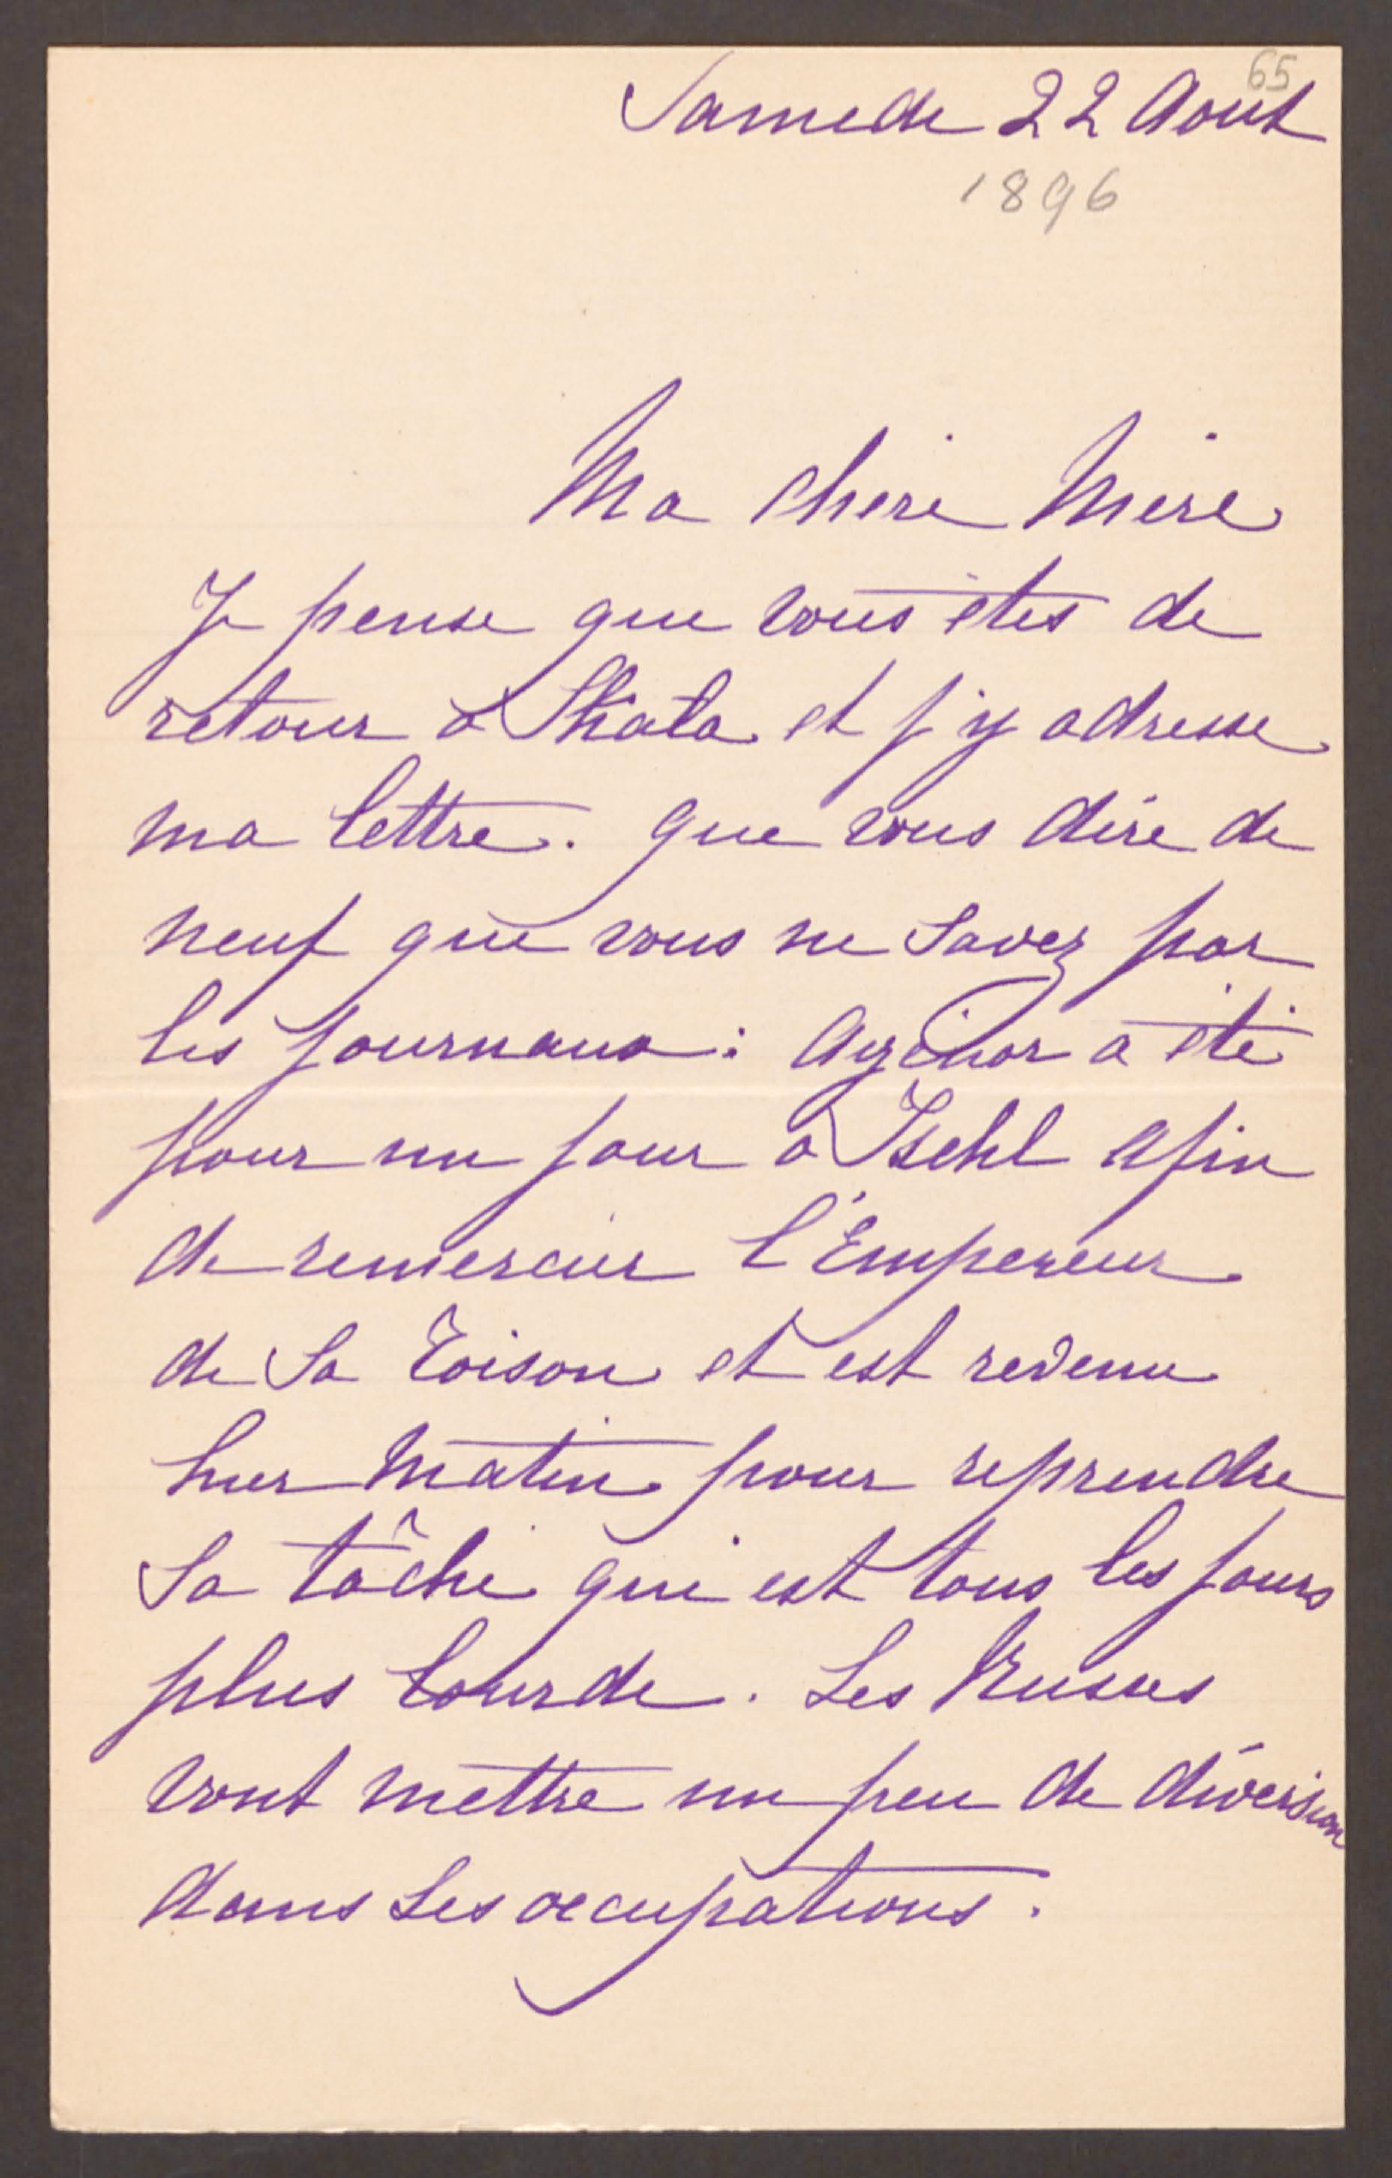 65
Samedi 22 Aout
1896
Ma chère Mère
Je pense que vous êtes de
retour à Skala et j'y adresse
ma lettre. Que vous dire de
neuf que vous ne savez par
les journaux: Agénor a été
pour un jour à Ischl afin
de remercier l'Empereur
de sa Toison et est revenu
hier matin pour reprendre
sa tâche qui est tous les jours
plus lourde. Les Russes
vont mettre un peu de diversion
dans ses occupations.